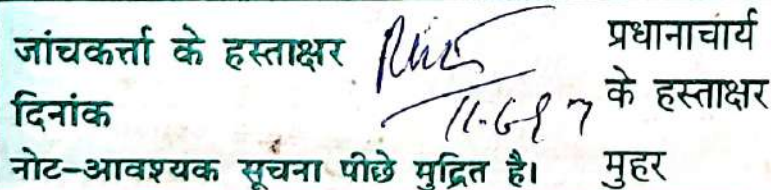 जांचकर्त्ता के हस्ताक्षर
दिनांक 11-6-97
नोट-आवश्यक सूचना पीछे मुद्रित है।
प्रधानाचार्य
के हस्ताक्षर
मुहर